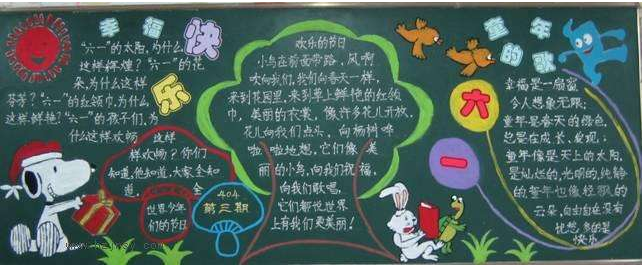 幸福快乐
"六一"的太阳,为什么
这样辉煌?"六一"的花
朵,为什么这样
芬芳?"六一"的红领巾,为什么
这样鲜艳?"六一"的孩子们,为
什么这样欢畅 这样
样欢畅?你们
知道,他知道,大家全知
道。 全
世界少年
们的节日
404
第三期
欢乐的节日
小鸟在前面带路,风啊
吹向我们,我们向春天一样,
来到花园里,来到草上鲜艳的红领
巾,美丽的衣裳,像许多花儿开放,
花儿向我们点头,向杨树哗
啦啦地想,它们像美
丽的小鸟,向我们祝福,
向我们歌唱,
它们都说世界
上有我们更美丽!
童年的歌
六一
幸福是一扇窗
令人想象无限;
童年是春天的绿色,
总是在成长、发现;
童年像是天上的太阳,
是灿烂的,光明的,纯静
的童年也像轻飘的
云朵,自由自在没有
忧愁,多的是
快乐